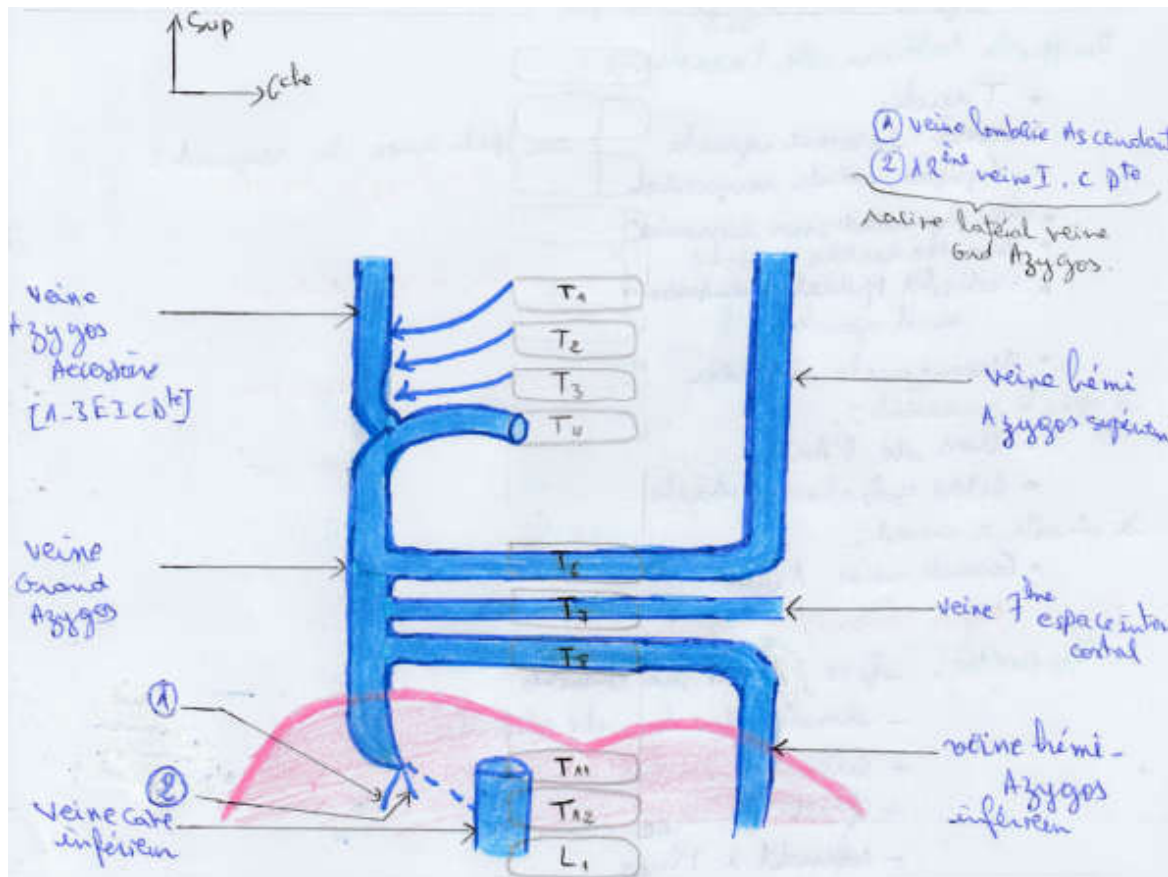 Sup
Gche
① veine lombaire Ascendant
② 12ème veine I.C Dte
racine latéral veine
Grd Azygos.
veine
Azygos
Accessoire
[1-3 E I C Dte]
T1
T2
T3
T4
veine hémi
Azygos supérieu
veine
Grand
Azygos
T6
T7
T8
veine 7ème
espace inter
costal
①
②
veine cave
inférieur
T11
T12
L1
veine hémi-
Azygos
inférieur